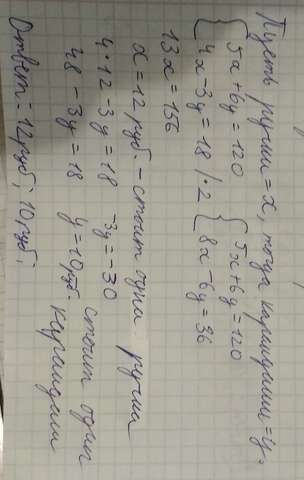 Пусть ручки = x, тогда карандаши = y.
{ 5x + 6y = 120 { 5x + 6y = 120
{ 4x - 3y = 18 | · 2 { 8x - 6y = 36
13x = 156
x = 12 руб. - стоит одна ручка
4 · 12 - 3y = 18 -3y = -30
48 - 3y = 18 y = 10 руб. стоит один карандаш
Ответ: 12 руб; 10 руб;